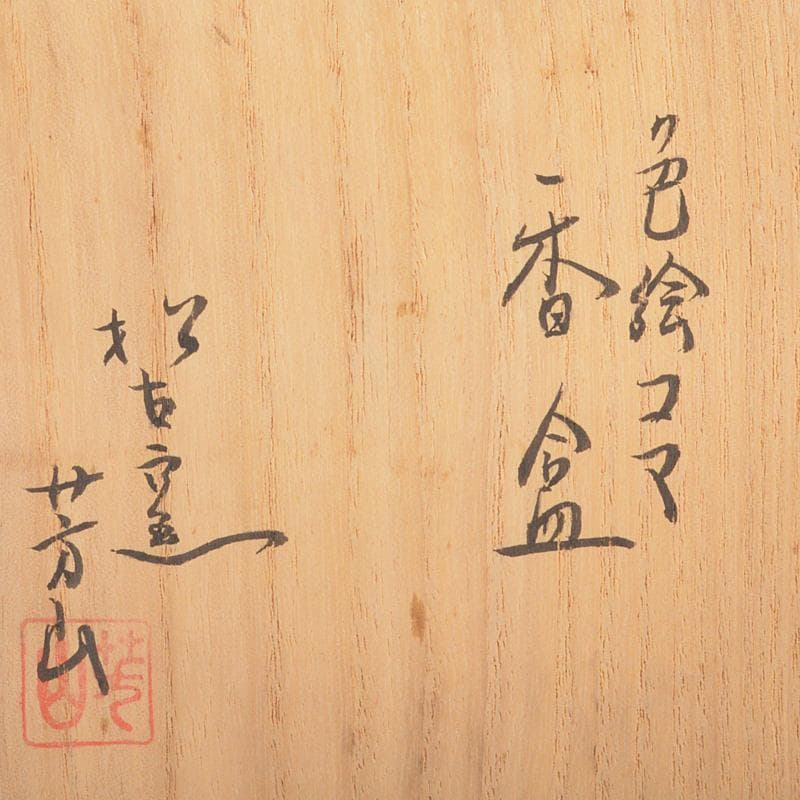 色絵コマ
香盒
松古窯
芳山